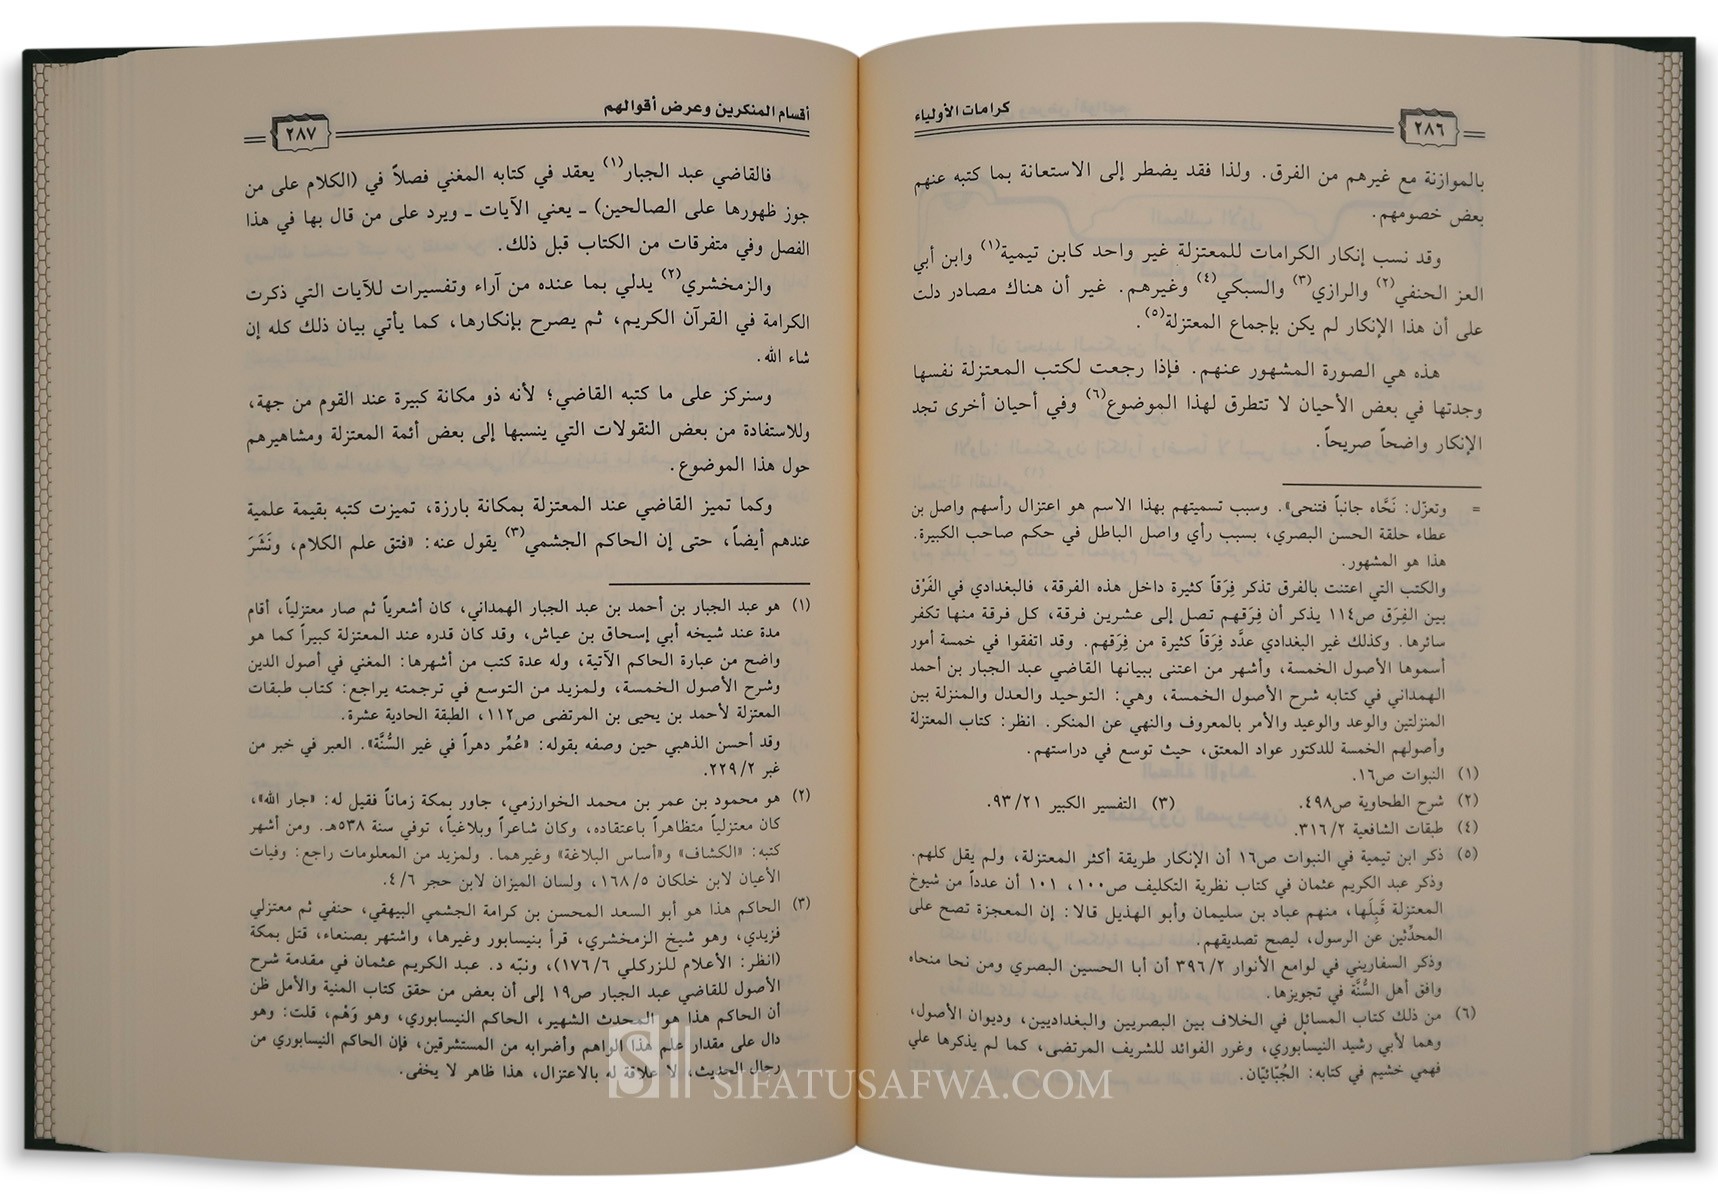 كرامات الأولياء
٢٨٦
بالموازنة مع غيرهم من الفرق. ولذا فقد يضطر إلى الاستعانة بما كتبه عنهم
بعض خصومهم.
وقد نسب إنكار الكرامات للمعتزلة غير واحد كابن تيمية(١) وابن أبي
العز الحنفي(٢) والرازي(٣) والسبكي(٤) وغيرهم. غير أن هناك مصادر دلت
على أن هذا الإنكار لم يكن بإجماع المعتزلة(٥).
هذه هي الصورة المشهور عنهم. فإذا رجعت لكتب المعتزلة نفسها
وجدتها في بعض الأحيان لا تتطرق لهذا الموضوع(٦) وفي أحيان أخرى تجد
الإنكار واضحاً صريحاً.
= وتعزّل: نَحَّاه جانباً فتنحى». وسبب تسميتهم بهذا الاسم هو اعتزال رأسهم واصل بن
عطاء حلقة الحسن البصري، بسبب رأي واصل الباطل في حكم صاحب الكبيرة.
هذا هو المشهور.
والكتب التي اعتنت بالفرق تذكر فِرَقاً كثيرة داخل هذه الفرقة، فالبغدادي في الفَرْق
بين الفِرَق ص١١٤ يذكر أن فِرَقهم تصل إلى عشرين فرقة، كل فرقة منها تكفر
سائرها. وكذلك غير البغدادي عدَّد فِرَقاً كثيرة من فِرَقهم. وقد اتفقوا في خمسة أمور
أسموها الأصول الخمسة، وأشهر من اعتنى ببيانها القاضي عبد الجبار بن أحمد
الهمداني في كتابه شرح الأصول الخمسة، وهي: التوحيد والعدل والمنزلة بين
المنزلتين والوعد والوعيد والأمر بالمعروف والنهي عن المنكر. انظر: كتاب المعتزلة
وأصولهم الخمسة للدكتور عواد المعتق، حيث توسع في دراستهم.
(١) النبوات ص١٦.
(٢) شرح الطحاوية ص٤٩٨. (٣) التفسير الكبير ٩٣/٢١.
(٤) طبقات الشافعية ٣١٦/٢.
(٥) ذكر ابن تيمية في النبوات ص١٦ أن الإنكار طريقة أكثر المعتزلة، ولم يقل كلهم.
وذكر عبد الكريم عثمان في كتاب نظرية التكليف ص١٠٠، ١٠١ أن عدداً من شيوخ
المعتزلة قَبِلَها، منهم عباد بن سليمان وأبو الهذيل قالا: إن المعجزة تصح على
المحدِّثين عن الرسول، ليصح تصديقهم.
وذكر السفاريني في لوامع الأنوار ٣٩٦/٢ أن أبا الحسين البصري ومن نحا منحاه
وافق أهل السُّنَّة في تجويزها.
(٦) من ذلك كتاب المسائل في الخلاف بين البصريين والبغداديين، وديوان الأصول،
وهما لأبي رشيد النيسابوري، وغرر الفوائد للشريف المرتضى، كما لم يذكرها علي
فهمي خشيم في كتابه: الجُبّائيّان.
أقسام المنكرين وعرض أقوالهم
٢٨٧
فالقاضي عبد الجبار(١) يعقد في كتابه المغني فصلاً في (الكلام على من
جوز ظهورها على الصالحين) ـ يعني الآيات ـ ويرد على من قال بها في هذا
الفصل وفي متفرقات من الكتاب قبل ذلك.
والزمخشري(٢) يدلي بما عنده من آراء وتفسيرات للآيات التي ذكرت
الكرامة في القرآن الكريم، ثم يصرح بإنكارها، كما يأتي بيان ذلك كله إن
شاء الله.
وسنركز على ما كتبه القاضي؛ لأنه ذو مكانة كبيرة عند القوم من جهة،
وللاستفادة من بعض النقولات التي ينسبها إلى بعض أئمة المعتزلة ومشاهيرهم
حول هذا الموضوع.
وكما تميز القاضي عند المعتزلة بمكانة بارزة، تميزت كتبه بقيمة علمية
عندهم أيضاً، حتى إن الحاكم الجشمي(٣) يقول عنه: «فتق علم الكلام، ونَشَرَ
(١) هو عبد الجبار بن أحمد بن عبد الجبار الهمداني، كان أشعرياً ثم صار معتزلياً، أقام
مدة عند شيخه أبي إسحاق بن عياش، وقد كان قدره عند المعتزلة كبيراً كما هو
واضح من عبارة الحاكم الآتية، وله عدة كتب من أشهرها: المغني في أصول الدين
وشرح الأصول الخمسة، ولمزيد من التوسع في ترجمته يراجع: كتاب طبقات
المعتزلة لأحمد بن يحيى بن المرتضى ص١١٢، الطبقة الحادية عشرة.
وقد أحسن الذهبي حين وصفه بقوله: «عُمِّر دهراً في غير السُّنَّة». العبر في خبر من
غبر ٢٢٩/٢.
(٢) هو محمود بن عمر بن محمد الخوارزمي، جاور بمكة زماناً فقيل له: «جار الله»،
كان معتزلياً متظاهراً باعتقاده، وكان شاعراً وبلاغياً، توفي سنة ٥٣٨هـ. ومن أشهر
كتبه: «الكشاف» و«أساس البلاغة» وغيرهما. ولمزيد من المعلومات راجع: وفيات
الأعيان لابن خلكان ١٦٨/٥، ولسان الميزان لابن حجر ٤/٦.
(٣) الحاكم هذا هو أبو السعد المحسن بن كرامة الجشمي البيهقي، حنفي ثم معتزلي
فزيدي، وهو شيخ الزمخشري، قرأ بنيسابور وغيرها، واشتهر بصنعاء، قتل بمكة
(انظر: الأعلام للزركلي ١٧٦/٦)، ونبّه د. عبد الكريم عثمان في مقدمة شرح
الأصول للقاضي عبد الجبار ص١٩ إلى أن بعض من حقق كتاب المنية والأمل ظن
أن الحاكم هذا هو المحدث الشهير، الحاكم النيسابوري، وهو وَهْم، قلت: وهو
دال على مقدار علم هذا الواهم وأضرابه من المستشرقين، فإن الحاكم النيسابوري من
رجال الحديث، لا علاقة له بالاعتزال، هذا ظاهر لا يخفى.
SIFATUSAFWA.COM